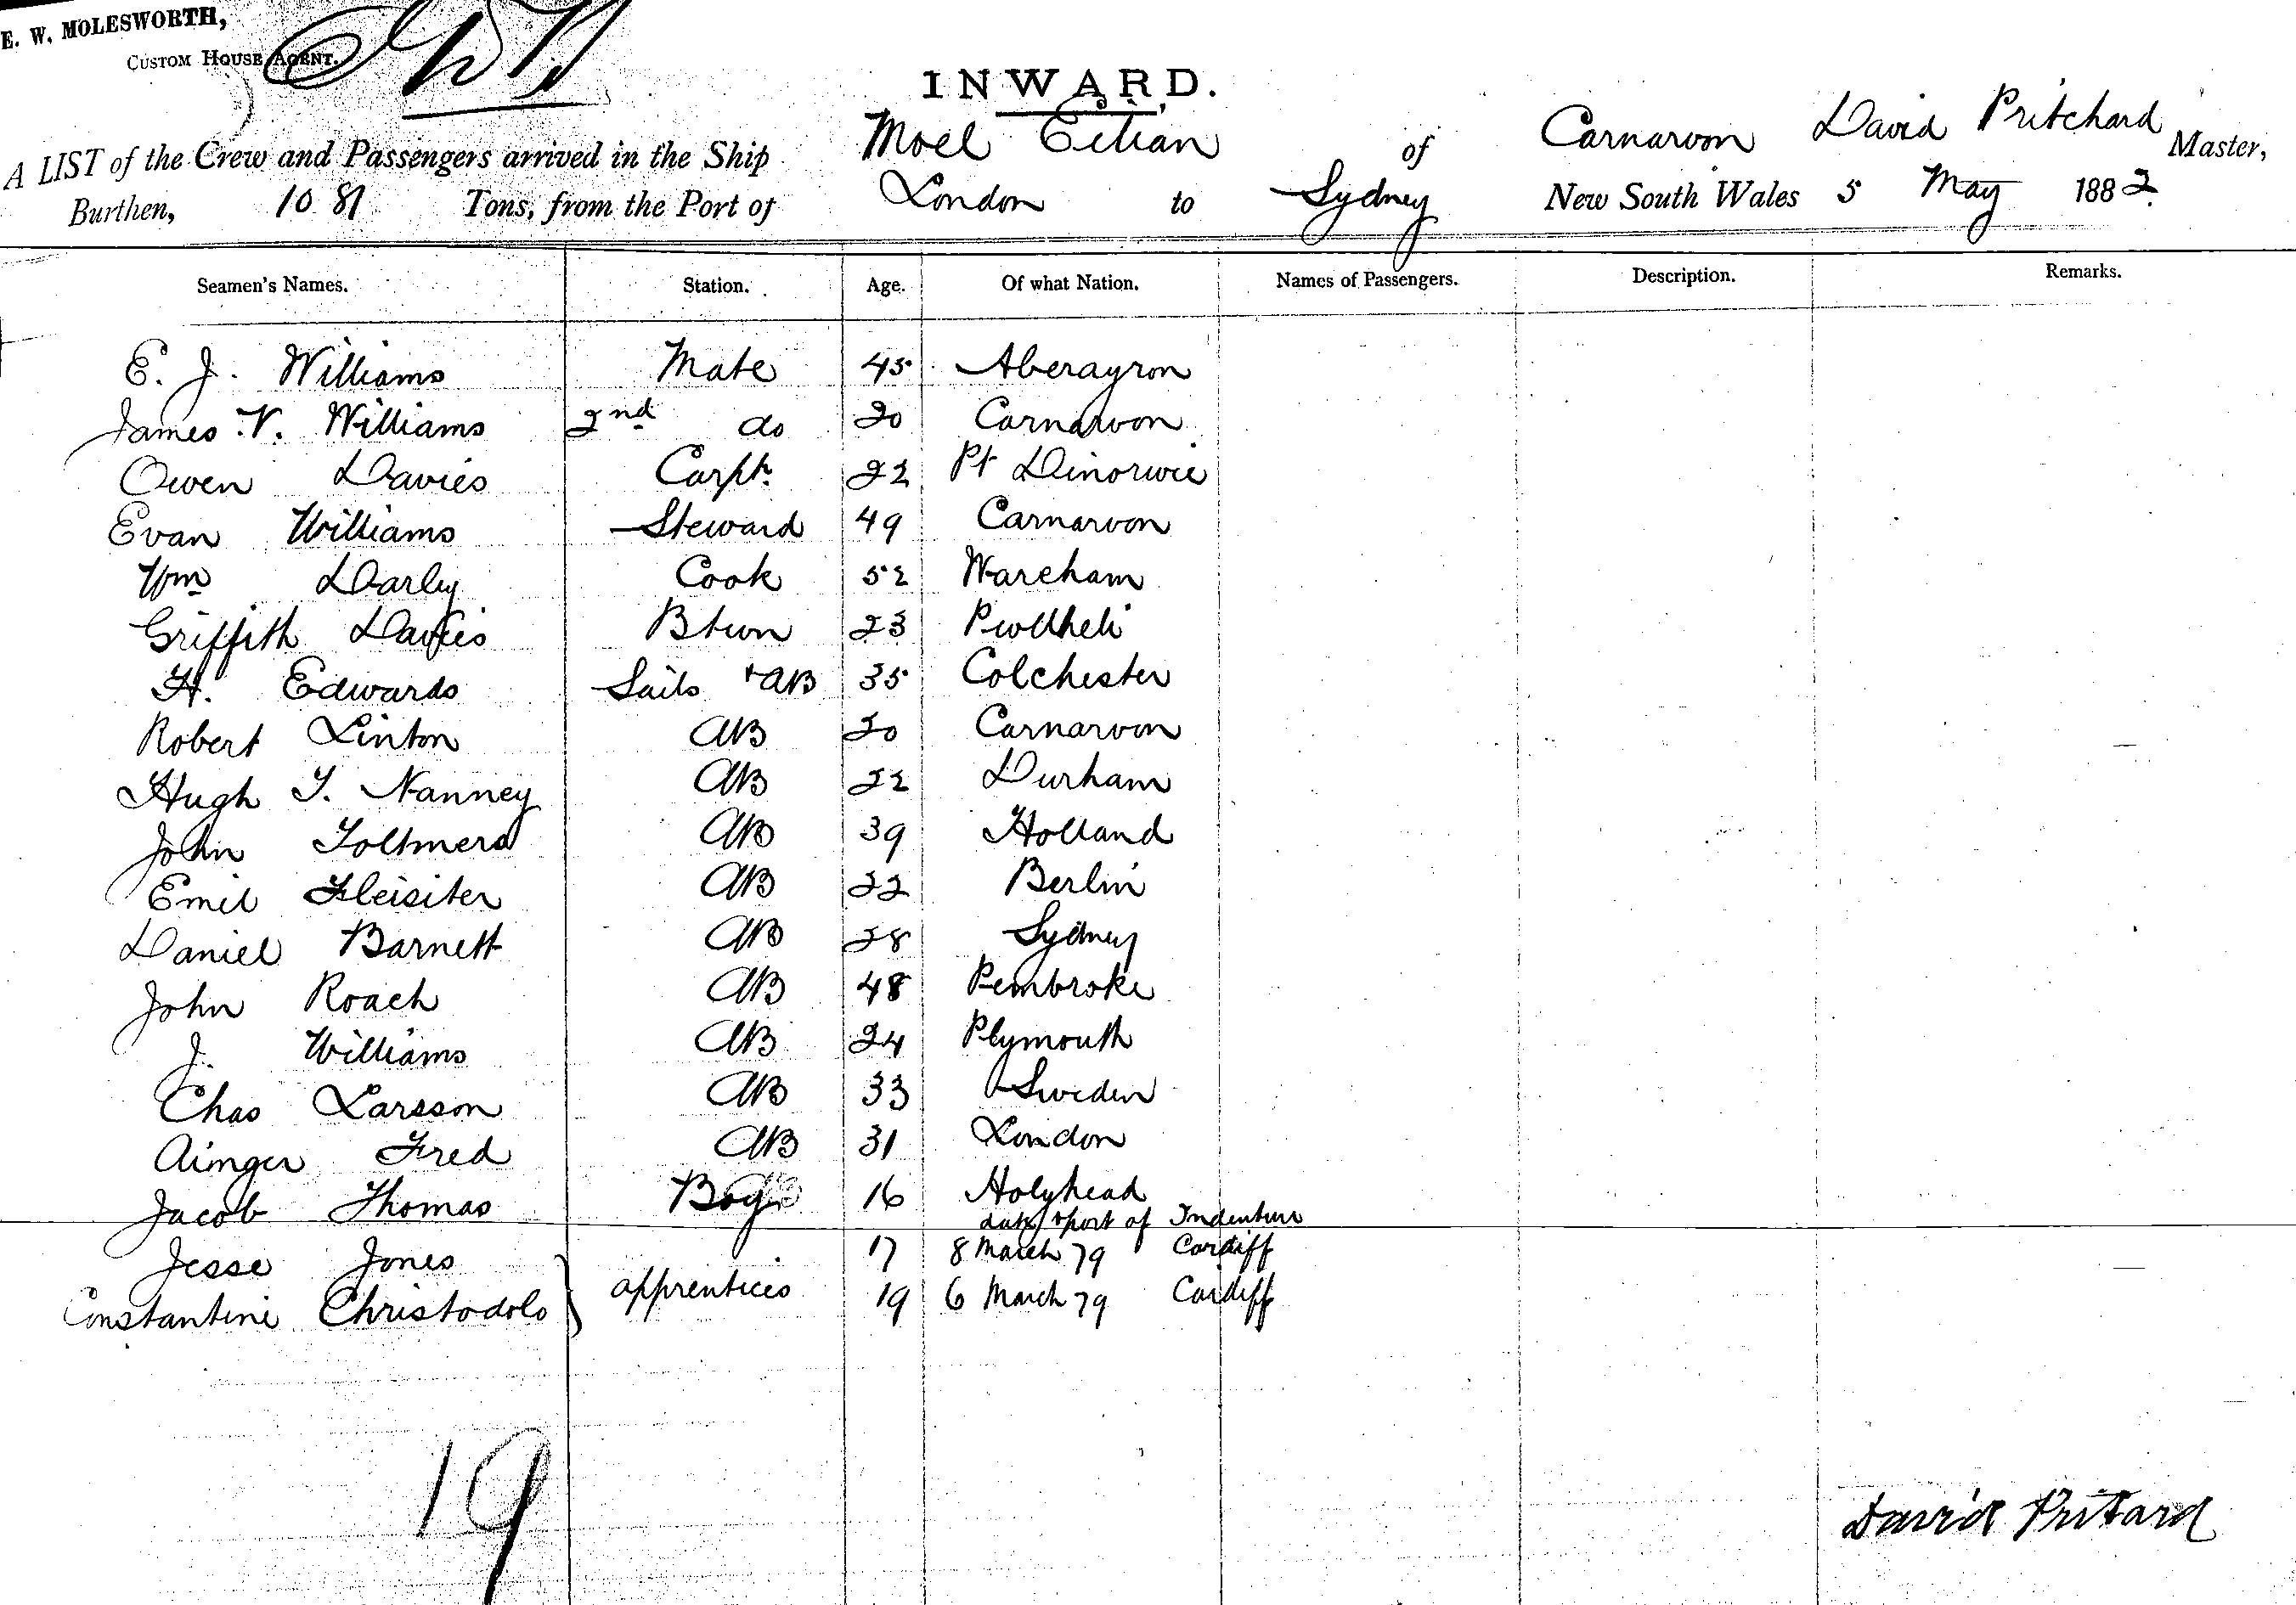 E. W. MOLESWORTH,
CUSTOM HOUSE AGENT.
INWARD.
A LIST of the Crew and Passengers arrived in the Ship Moel Eilian of Carnarvon David Pritchard Master,
Burthen, 1081 Tons, from the Port of London to Sydney New South Wales 5 May 1882.
Seamen's Names. Station. Age. Of what Nation. Names of Passengers. Description. Remarks.
E. J. Williams Mate 45 Aberayron
James V. Williams 2nd do 20 Carnarvon
Owen Davies Carptr 22 Pt Dinorwic
Evan Williams Steward 49 Carnarvon
Wm Darby Cook 52 Wareham
Griffith Davies Btwn 23 Pwllheli
H. Edwards Sails + AB 35 Colchester
Robert Linton AB 20 Carnarvon
Hugh T. Nanney AB 22 Durham
John AB 39 Holland
Emil Fleisiter AB 22 Berlin
Daniel Barnett AB 28 Sydney
John Roach AB 48 Pembroke
J. Williams AB 24 Plymouth
Chas Larsson AB 33 Sweden
Ainger Fred AB 31 London
Jacob Thomas Boy 16 Holyhead
date & port of Indenture
Jesse Jones 17 8 March 79 Cardiff
apprentices
Constantine Christodolo 19 6 March 79 Cardiff
19
David Pritard